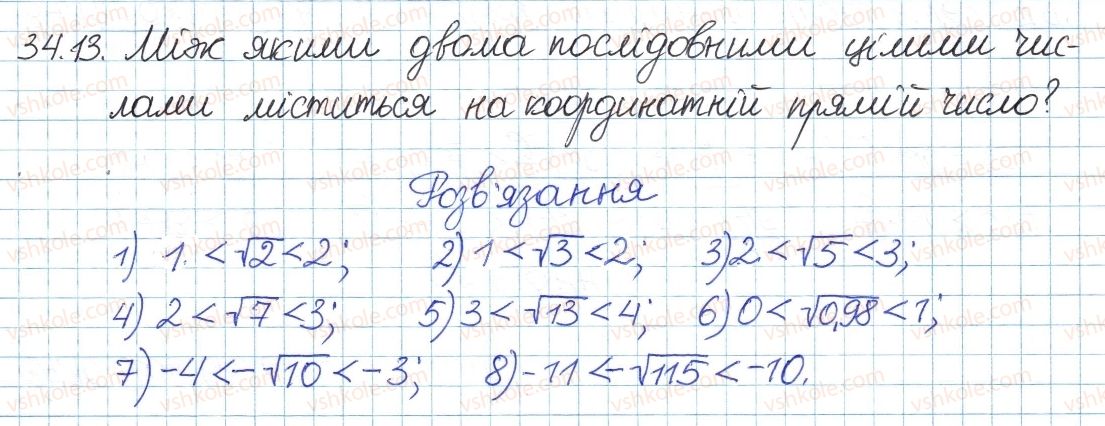 34.13. Між якими двома послідовними цілими чис-
лами міститься на координатній прямій число?
Розв'язання
1) 1 < √2 < 2; 2) 1 < √3 < 2; 3) 2 < √5 < 3;
4) 2 < √7 < 3; 5) 3 < √13 < 4; 6) 0 < √0,98 < 1;
7) -4 < -√10 < -3; 8) -11 < -√115 < -10.